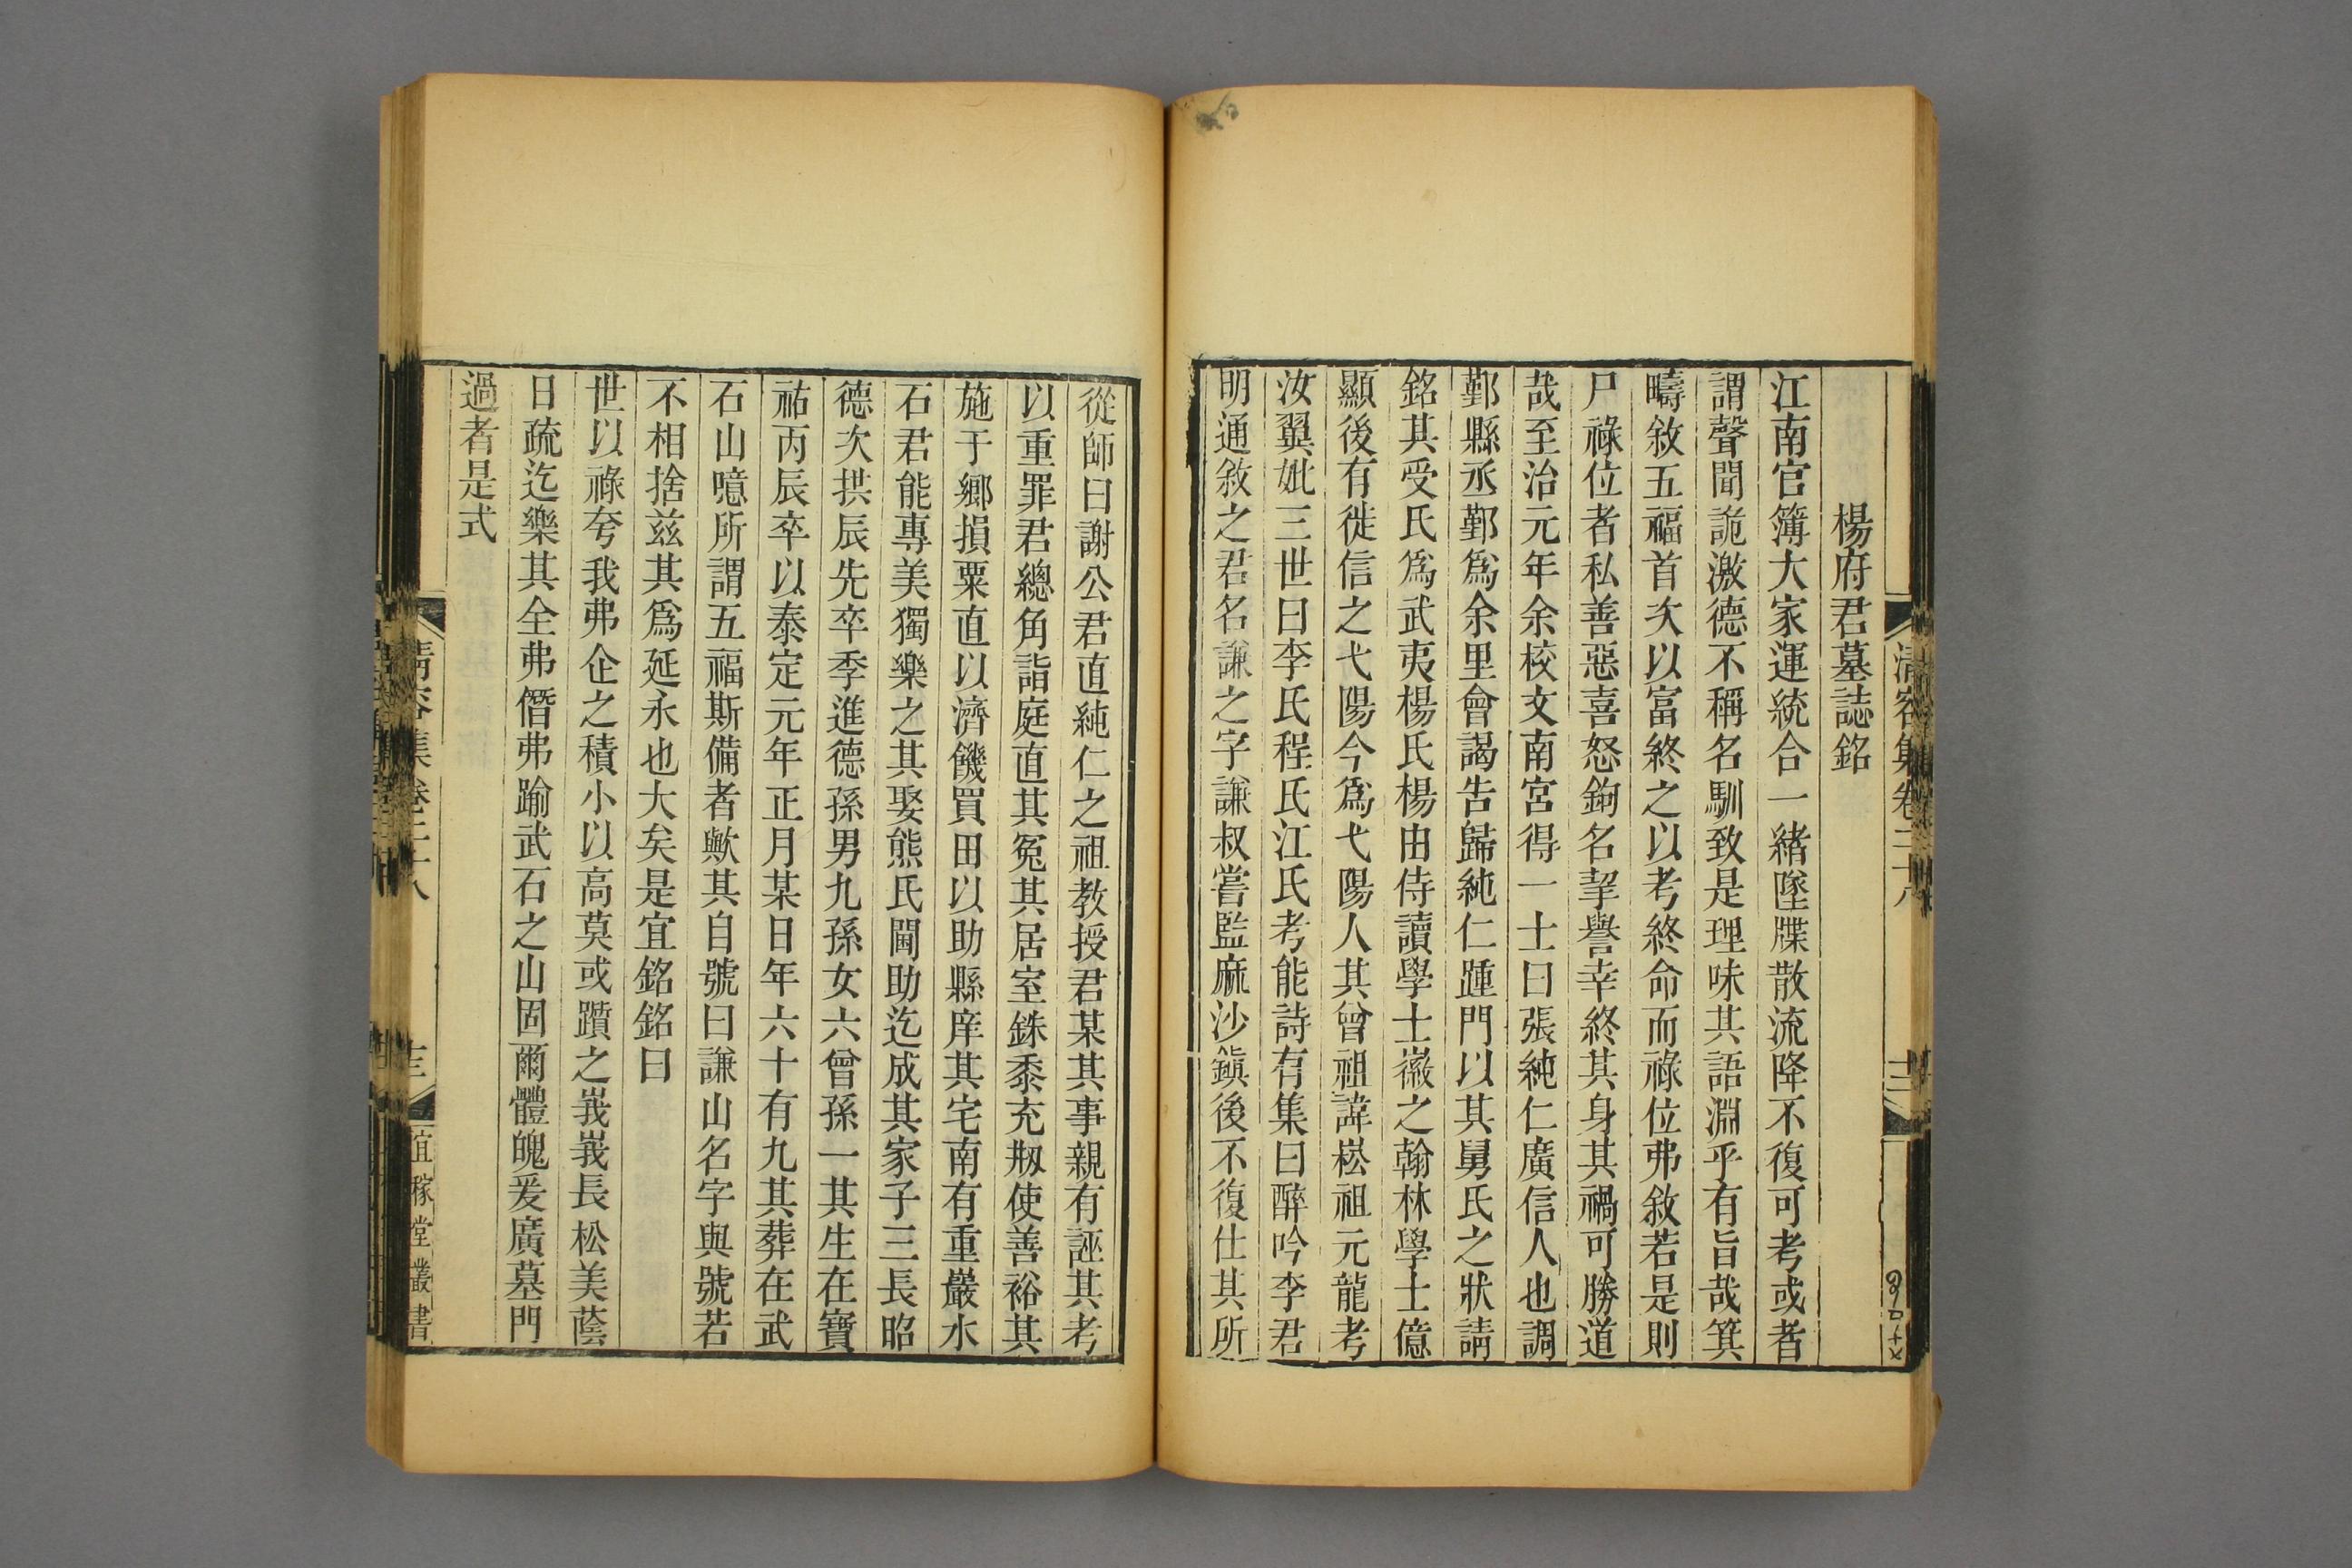 清容集卷二十八
十二
楊府君墓誌銘
江南官簿大家運統合一緒墜牒散流降不復可考或者
謂聲聞詭激德不稱名馴致是理味其語淵乎有旨哉箕
疇敘五福首次以富終之以考終命而祿位弗敘若是則
尸祿位者私善惡喜怒鉤名挈譽幸終其身其禍可勝道
哉至治元年余校文南宮得一士曰張純仁廣信人也調
鄞縣丞鄞爲余里會謁告歸純仁踵門以其舅氏之狀請
銘其受氏爲武夷楊氏楊由侍讀學士徽之翰林學士億
顯後有徙信之弋陽今爲弋陽人其曾祖諱崧祖元龍考
汝翼妣三世曰李氏程氏江氏考能詩有集曰醉吟李君
明通敘之君名謙之字謙叔嘗監麻沙鎭後不復仕其所
從師曰謝公君直純仁之祖教授君某其事親有誣其考
以重罪君總角詣庭直其冤其居室銖黍充牣使善裕其
施于鄉損粟直以濟饑買田以助縣庠其宅南有重巖水
石君能專美獨樂之其娶熊氏閫助迄成其家子三長昭
德次拱辰先卒季進德孫男九孫女六曾孫一其生在寶
祐丙辰卒以泰定元年正月某日年六十有九其葬在武
石山噫所謂五福斯備者歟其自號曰謙山名字與號若
不相捨兹其爲延永也大矣是宜銘銘曰
世以祿夸我弗企之積小以高莫或躓之峩峩長松美蔭
日疏迄樂其全弗僭弗踰武石之山固爾體魄爰廣墓門
過者是式
清容集卷二十八
十三
宜稼堂叢書